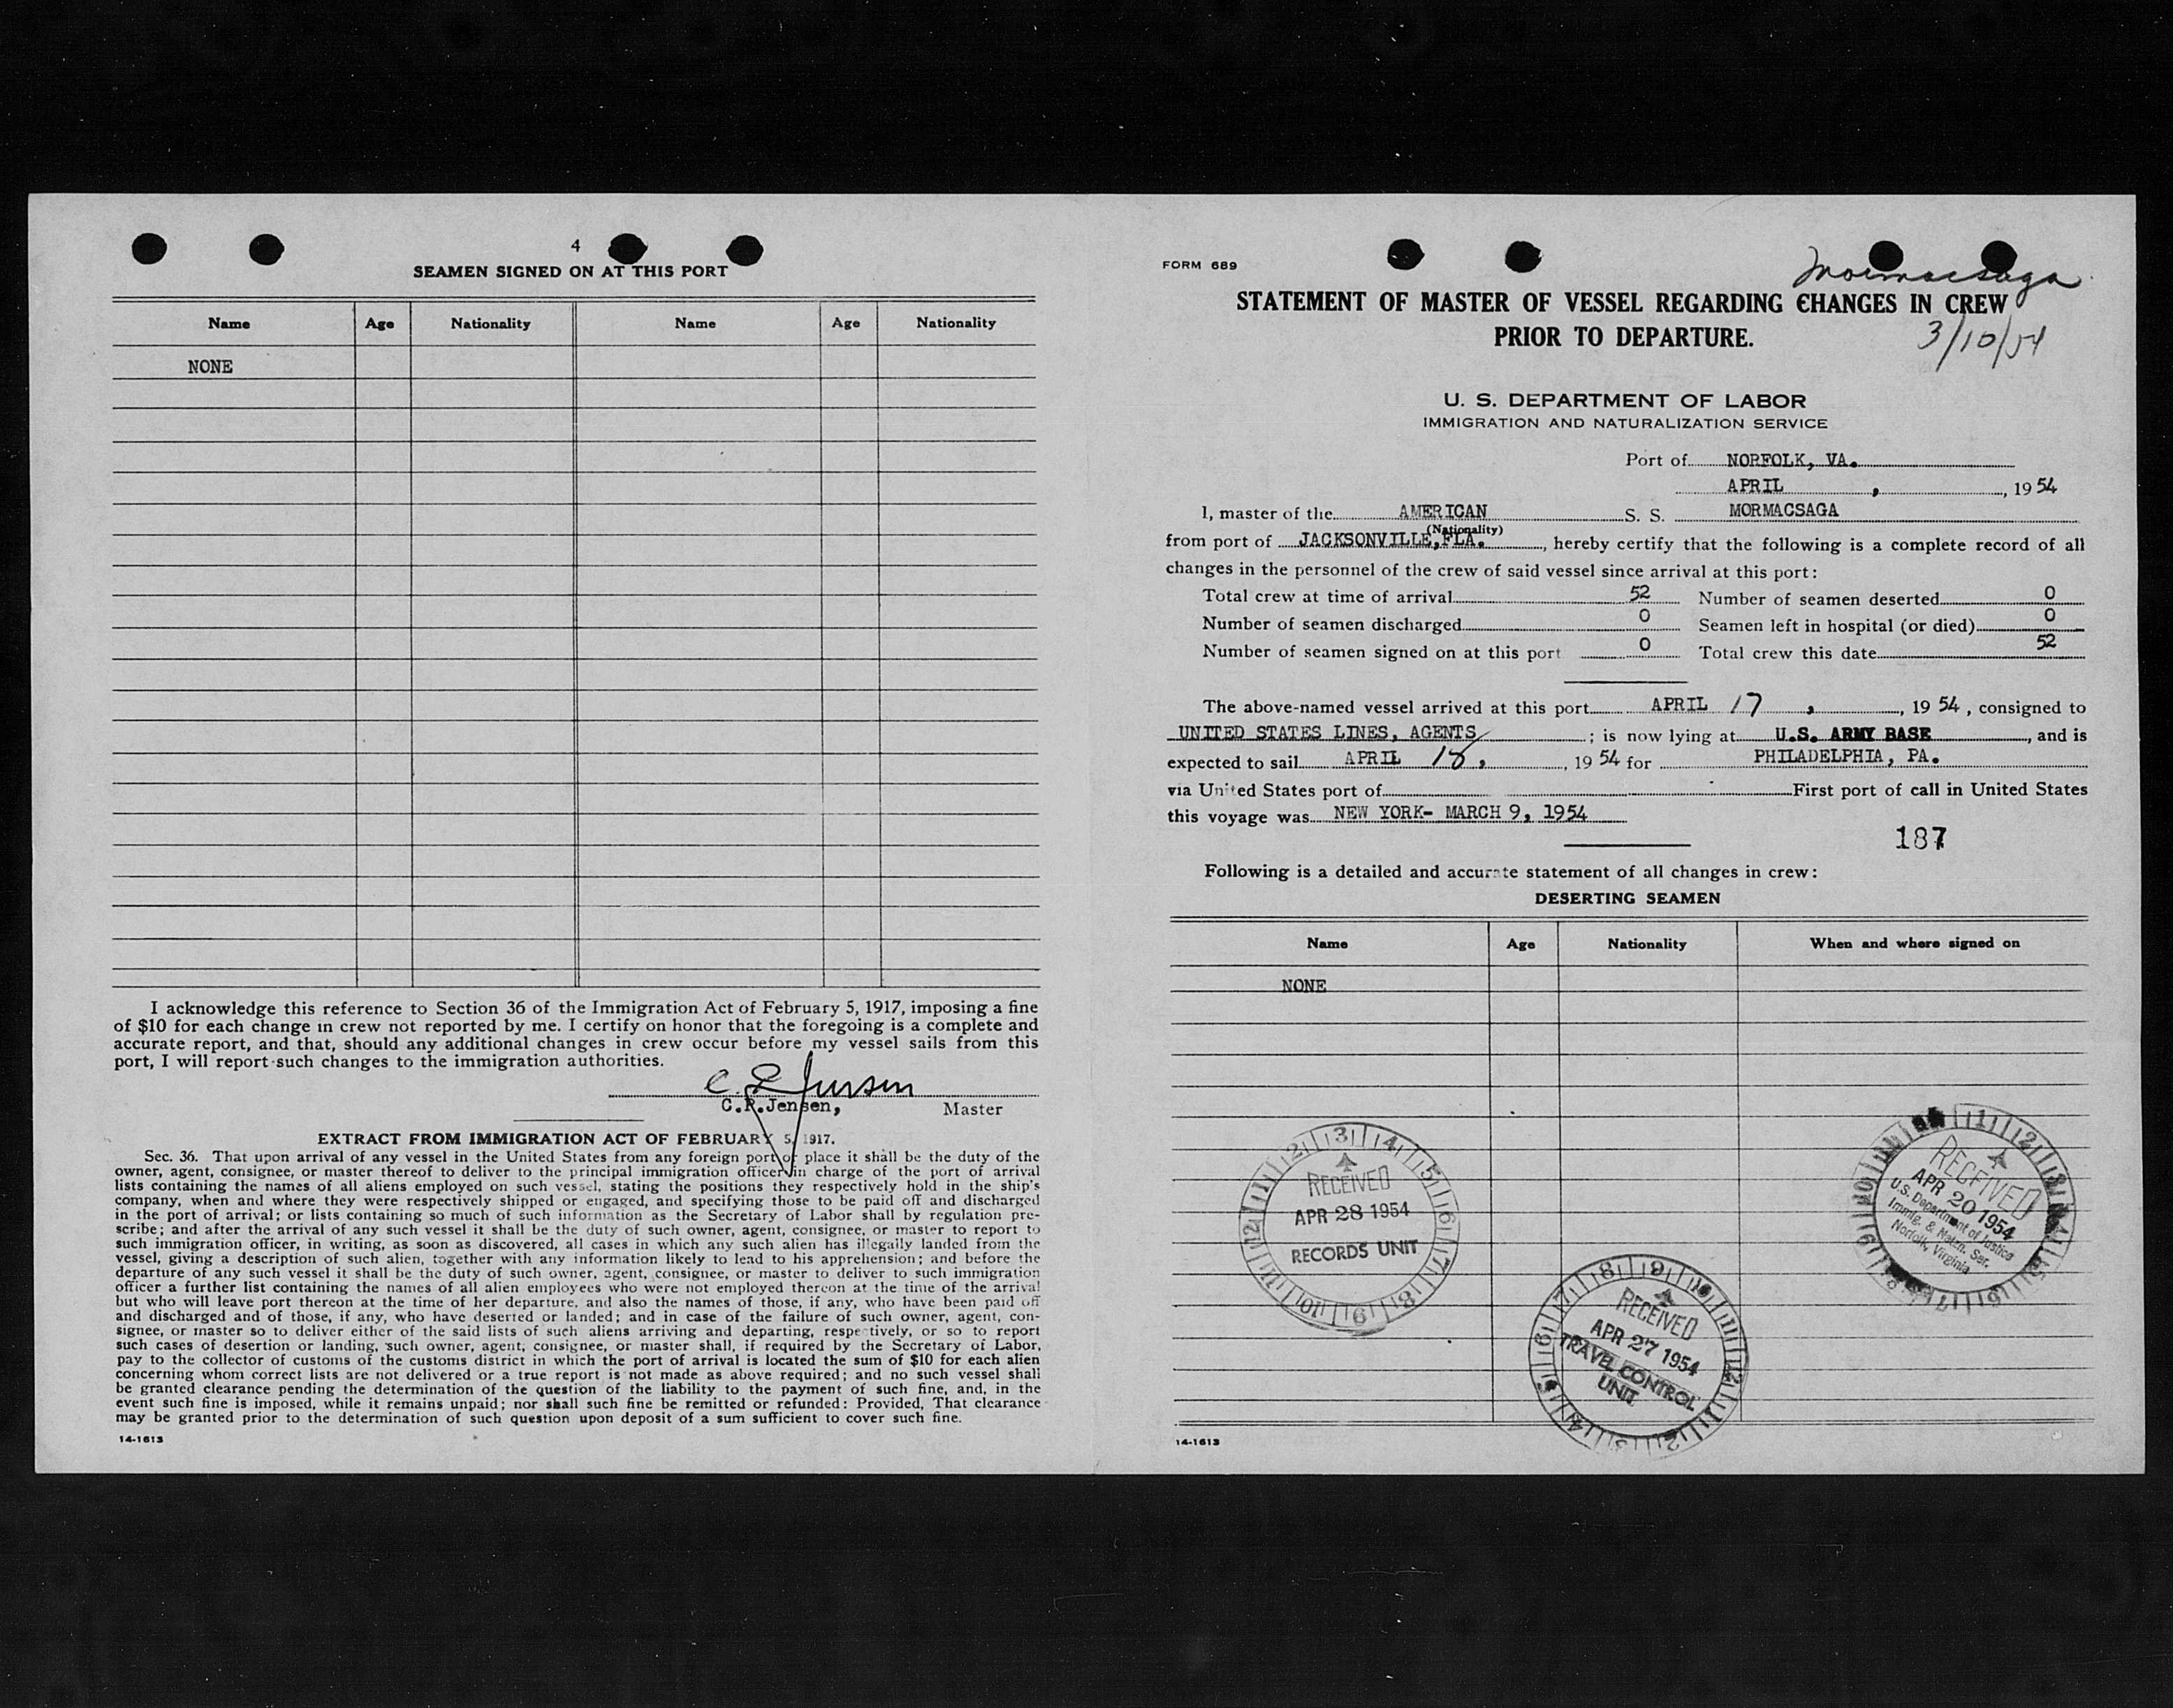 4
SEAMEN SIGNED ON AT THIS PORT
Name Age Nationality Name Age Nationality
NONE
I acknowledge this reference to Section 36 of the Immigration Act of February 5, 1917, imposing a fine
of $10 for each change in crew not reported by me. I certify on honor that the foregoing is a complete and
accurate report, and that, should any additional changes in crew occur before my vessel sails from this
port, I will report such changes to the immigration authorities.
C. R. Jensen
C.R.Jensen, Master
EXTRACT FROM IMMIGRATION ACT OF FEBRUARY 5, 1917.
Sec. 36. That upon arrival of any vessel in the United States from any foreign port or place it shall be the duty of the
owner, agent, consignee, or master thereof to deliver to the principal immigration officer in charge of the port of arrival
lists containing the names of all aliens employed on such vessel, stating the positions they respectively hold in the ship's
company, when and where they were respectively shipped or engaged, and specifying those to be paid off and discharged
in the port of arrival; or lists containing so much of such information as the Secretary of Labor shall by regulation pre-
scribe; and after the arrival of any such vessel it shall be the duty of such owner, agent, consignee, or master to report to
such immigration officer, in writing, as soon as discovered, all cases in which any such alien has illegally landed from the
vessel, giving a description of such alien, together with any information likely to lead to his apprehension; and before the
departure of any such vessel it shall be the duty of such owner, agent, consignee, or master to deliver to such immigration
officer a further list containing the names of all alien employees who were not employed thereon at the time of the arrival
but who will leave port thereon at the time of her departure, and also the names of those, if any, who have been paid off
and discharged and of those, if any, who have deserted or landed; and in case of the failure of such owner, agent, con-
signee, or master so to deliver either of the said lists of such aliens arriving and departing, respectively, or so to report
such cases of desertion or landing, such owner, agent, consignee, or master shall, if required by the Secretary of Labor,
pay to the collector of customs of the customs district in which the port of arrival is located the sum of $10 for each alien
concerning whom correct lists are not delivered or a true report is not made as above required; and no such vessel shall
be granted clearance pending the determination of the question of the liability to the payment of such fine, and, in the
event such fine is imposed, while it remains unpaid; nor shall such fine be remitted or refunded: Provided, That clearance
may be granted prior to the determination of such question upon deposit of a sum sufficient to cover such fine.
14-1613
FORM 689
Mormacsaga
STATEMENT OF MASTER OF VESSEL REGARDING CHANGES IN CREW
PRIOR TO DEPARTURE.
3/10/54
U. S. DEPARTMENT OF LABOR
IMMIGRATION AND NATURALIZATION SERVICE
Port of NORFOLK, VA.
APRIL , , 19 54
I, master of the AMERICAN S. S. MORMACSAGA
(Nationality)
from port of JACKSONVILLE, FLA. , hereby certify that the following is a complete record of all
changes in the personnel of the crew of said vessel since arrival at this port:
Total crew at time of arrival 52 Number of seamen deserted 0
Number of seamen discharged 0 Seamen left in hospital (or died) 0
Number of seamen signed on at this port 0 Total crew this date 52
The above-named vessel arrived at this port APRIL 17 , , 19 54 , consigned to
UNITED STATES LINES, AGENTS ; is now lying at U.S. ARMY BASE , and is
expected to sail APRIL 18, , 19 54 for PHILADELPHIA, PA.
via United States port of First port of call in United States
this voyage was NEW YORK- MARCH 9, 1954
187
Following is a detailed and accurate statement of all changes in crew:
DESERTING SEAMEN
Name Age Nationality When and where signed on
NONE
1 2 3 4 5 6 7 8 9 10 11 12
RECEIVED
APR 28 1954
RECORDS UNIT
1 2 3 4 5 6 7 8 9 10 11 12
RECEIVED
APR 27 1954
TRAVEL CONTROL
UNIT
RECEIVED
APR 20 1954
U.S. Department of Justice
Immig. & Natzn. Ser.
Norfolk, Virginia
14-1613